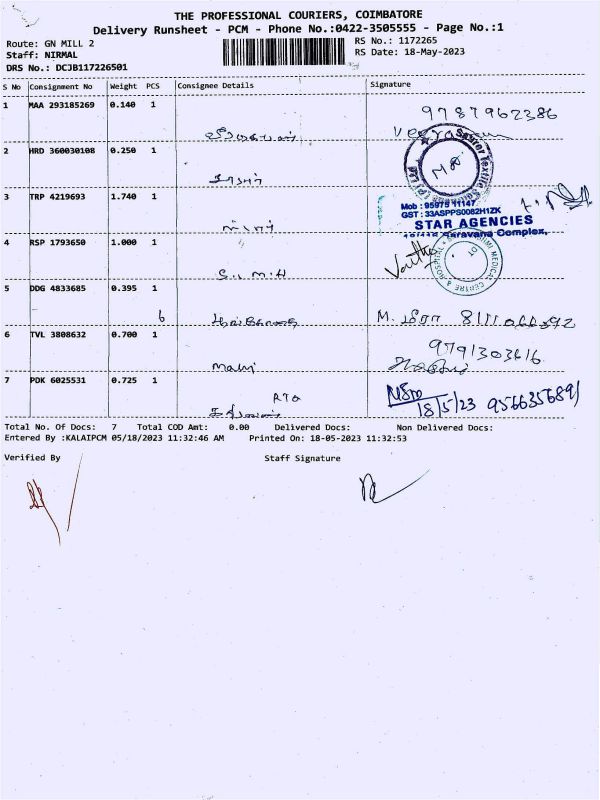 THE PROFESSIONAL COURIERS, COIMBATORE
Delivery Runsheet - PCM - Phone No.:0422-3505555 - Page No.:1
Route: GN MILL 2
RS No.: 1172265
Staff: NIRMAL
RS Date: 18-May-2023
DRS No.: DCJB117226501
S No Consignment No Weight PCS Consignee Details Signature
1 MAA 293185269 0.140 1
9787962386
2 HRD 360030108 0.250 1
3 TRP 4219693 1.740 1
Mob : 95975 11147
GST : 33ASPPS0082H1ZK
STAR AGENCIES
Saravana Complex,
4 RSP 1793650 1.000 1
5 DDG 4833685 0.395 1
6
M. மீரா
6 TVL 3808632 0.700 1
9791303616
Mani
7 PDK 6025531 0.725 1
RTO
18/5/23 9566356891
Total No. Of Docs: 7 Total COD Amt: 0.00 Delivered Docs: Non Delivered Docs:
Entered By :KALAIPCM 05/18/2023 11:32:46 AM Printed On: 18-05-2023 11:32:53
Verified By Staff Signature